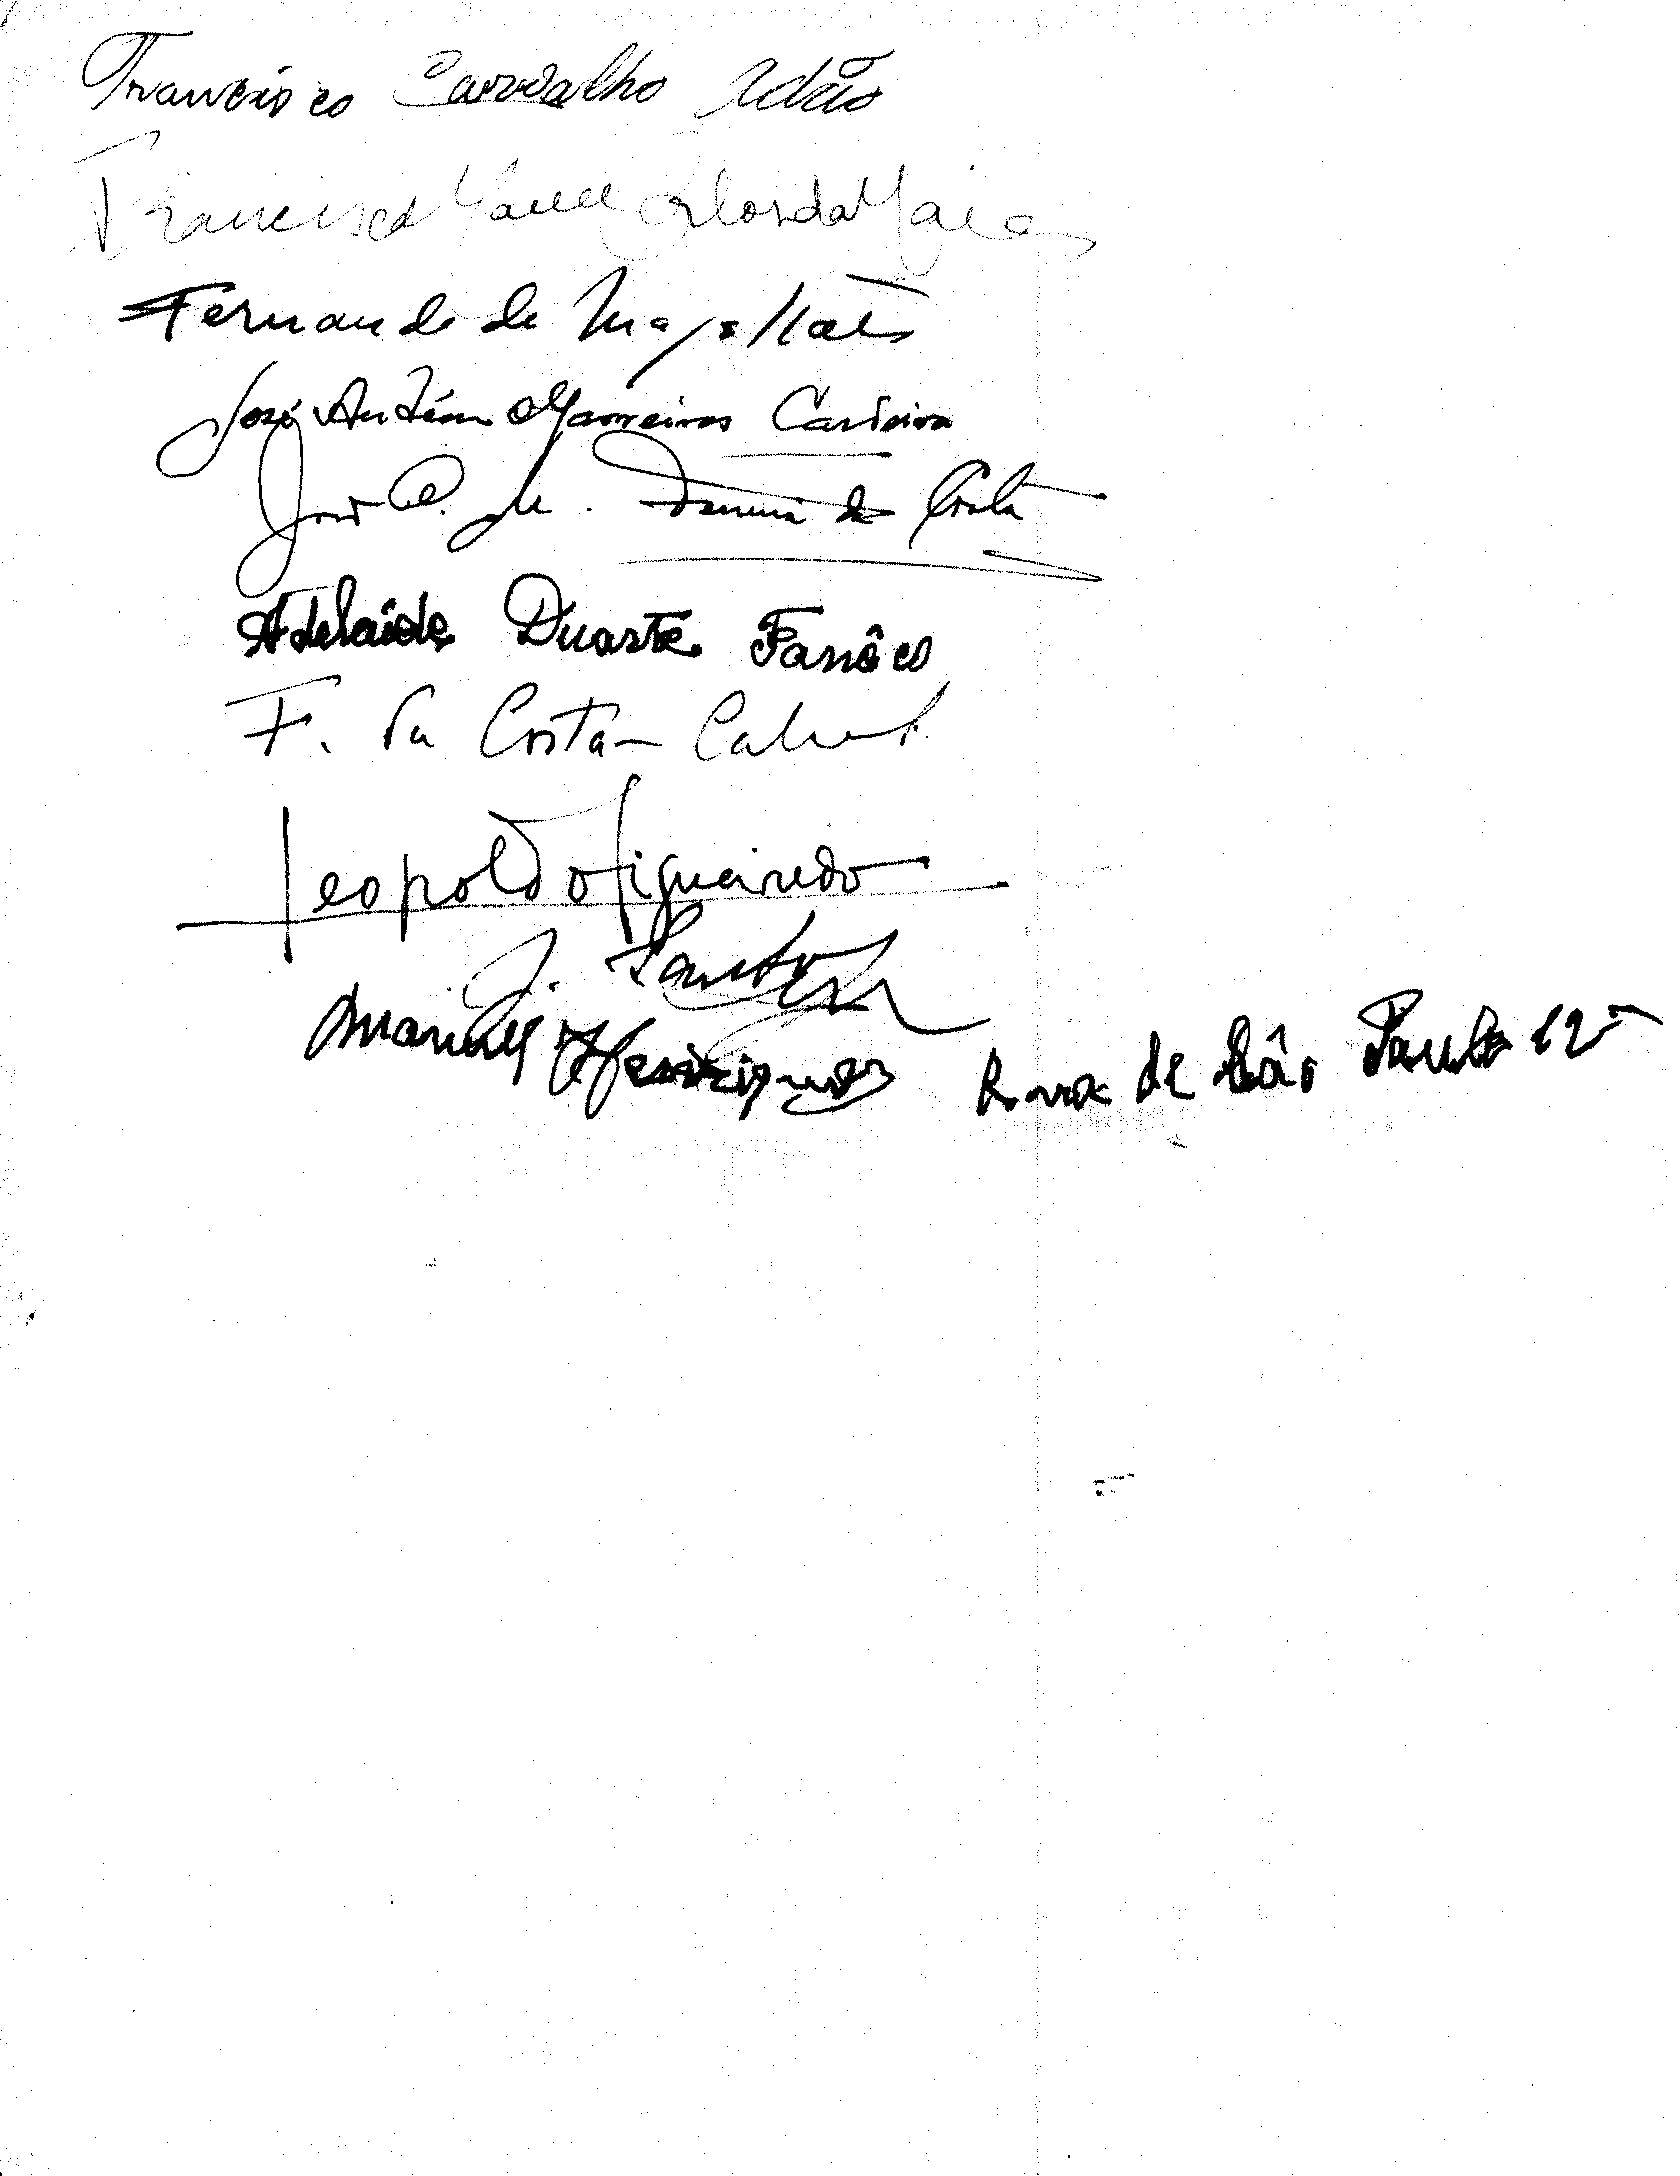 Francisco Carvalho Adão
Francisco da Maia
Fernando de Magalhães
José António Marreiros Carteiro
José C. M. Ferreira da Costa
Adelaide Duarte Farrôco
F. da Costa Cabral
Leopoldo Figueiredo
J. Santos
Manuel Henriques Rua de São Paulo 12